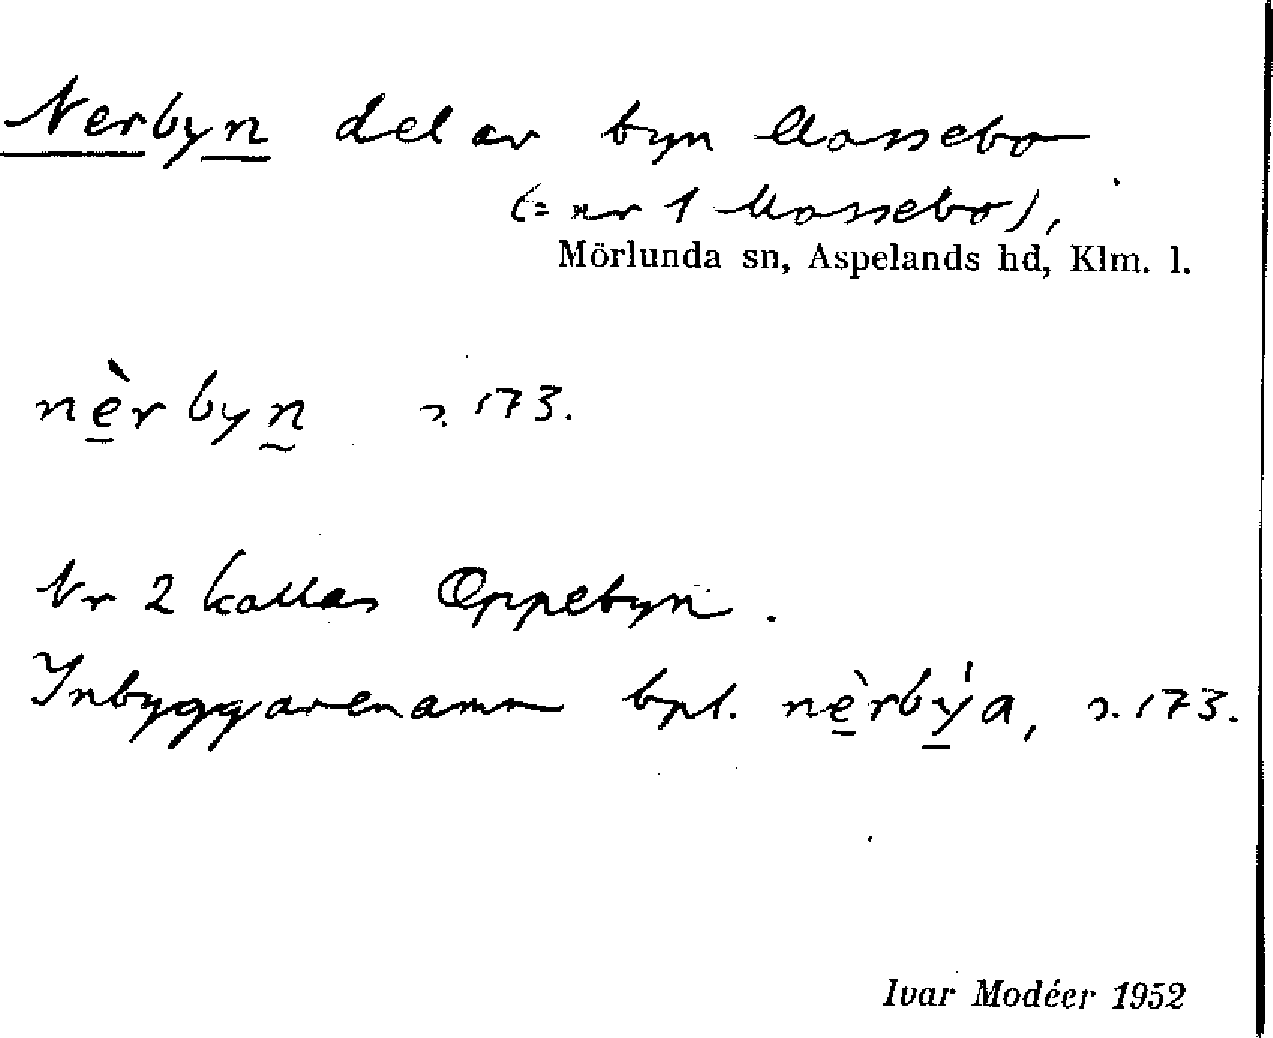 Nerbyn del av byn Mossebo
(= nr 1 Mossebo),
Mörlunda sn, Aspelands hd, Klm. l.
nèrbyn s. 173.
Nr 2 kallas Oppebyn.
Inbyggarenamn bpl. nèrbýa, s. 173.
Ivar Modéer 1952